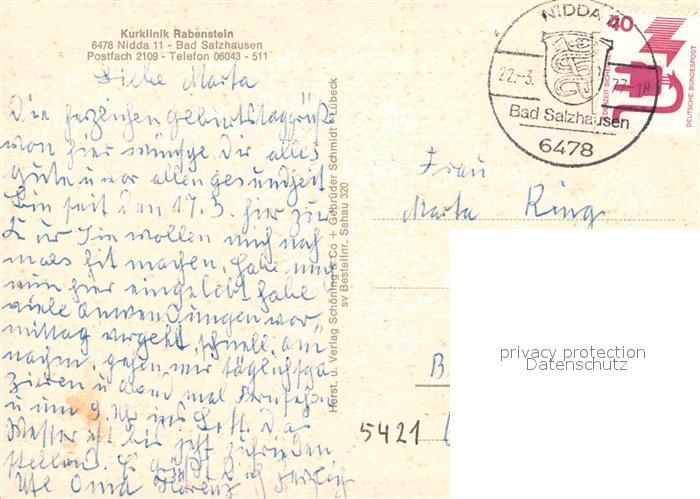 Kurklinik Rabenstein
6478 Nidda 11 - Bad Salzhausen
Postfach 2109 - Telefon 06043 - 511
Liebe Marta
Die herzlichen Geburtstaggrüß
von hier wünsche Dir alles
gute u vor allen gesundheit
Bin seit den 17.3. hier zur
Kur Sie wollen mich noch
mals fit machen, habe mich
nun hier eingelebt habe
viele Anwendungen vor
mittag vergeht schnell, am
nachm. gehen wir täglich spa
zieren u abend mal Fernsehen
u um 9. Uhr ins Bett. Das
Wetter ist bis jetzt zufrieden
stellend. Es grüßt Dich herzlich
Oma
Herst. u. Verlag Schöning & Co + Gebrüder Schmidt Lübeck
sv Bestellnr. Sahau 320
NIDDA
22.-3. 77-18
Bad Salzhausen
6478
40
DEUTSCHE BUNDESPOST
Frau
Marta Ring
B
5421
privacy protection
Datenschutz